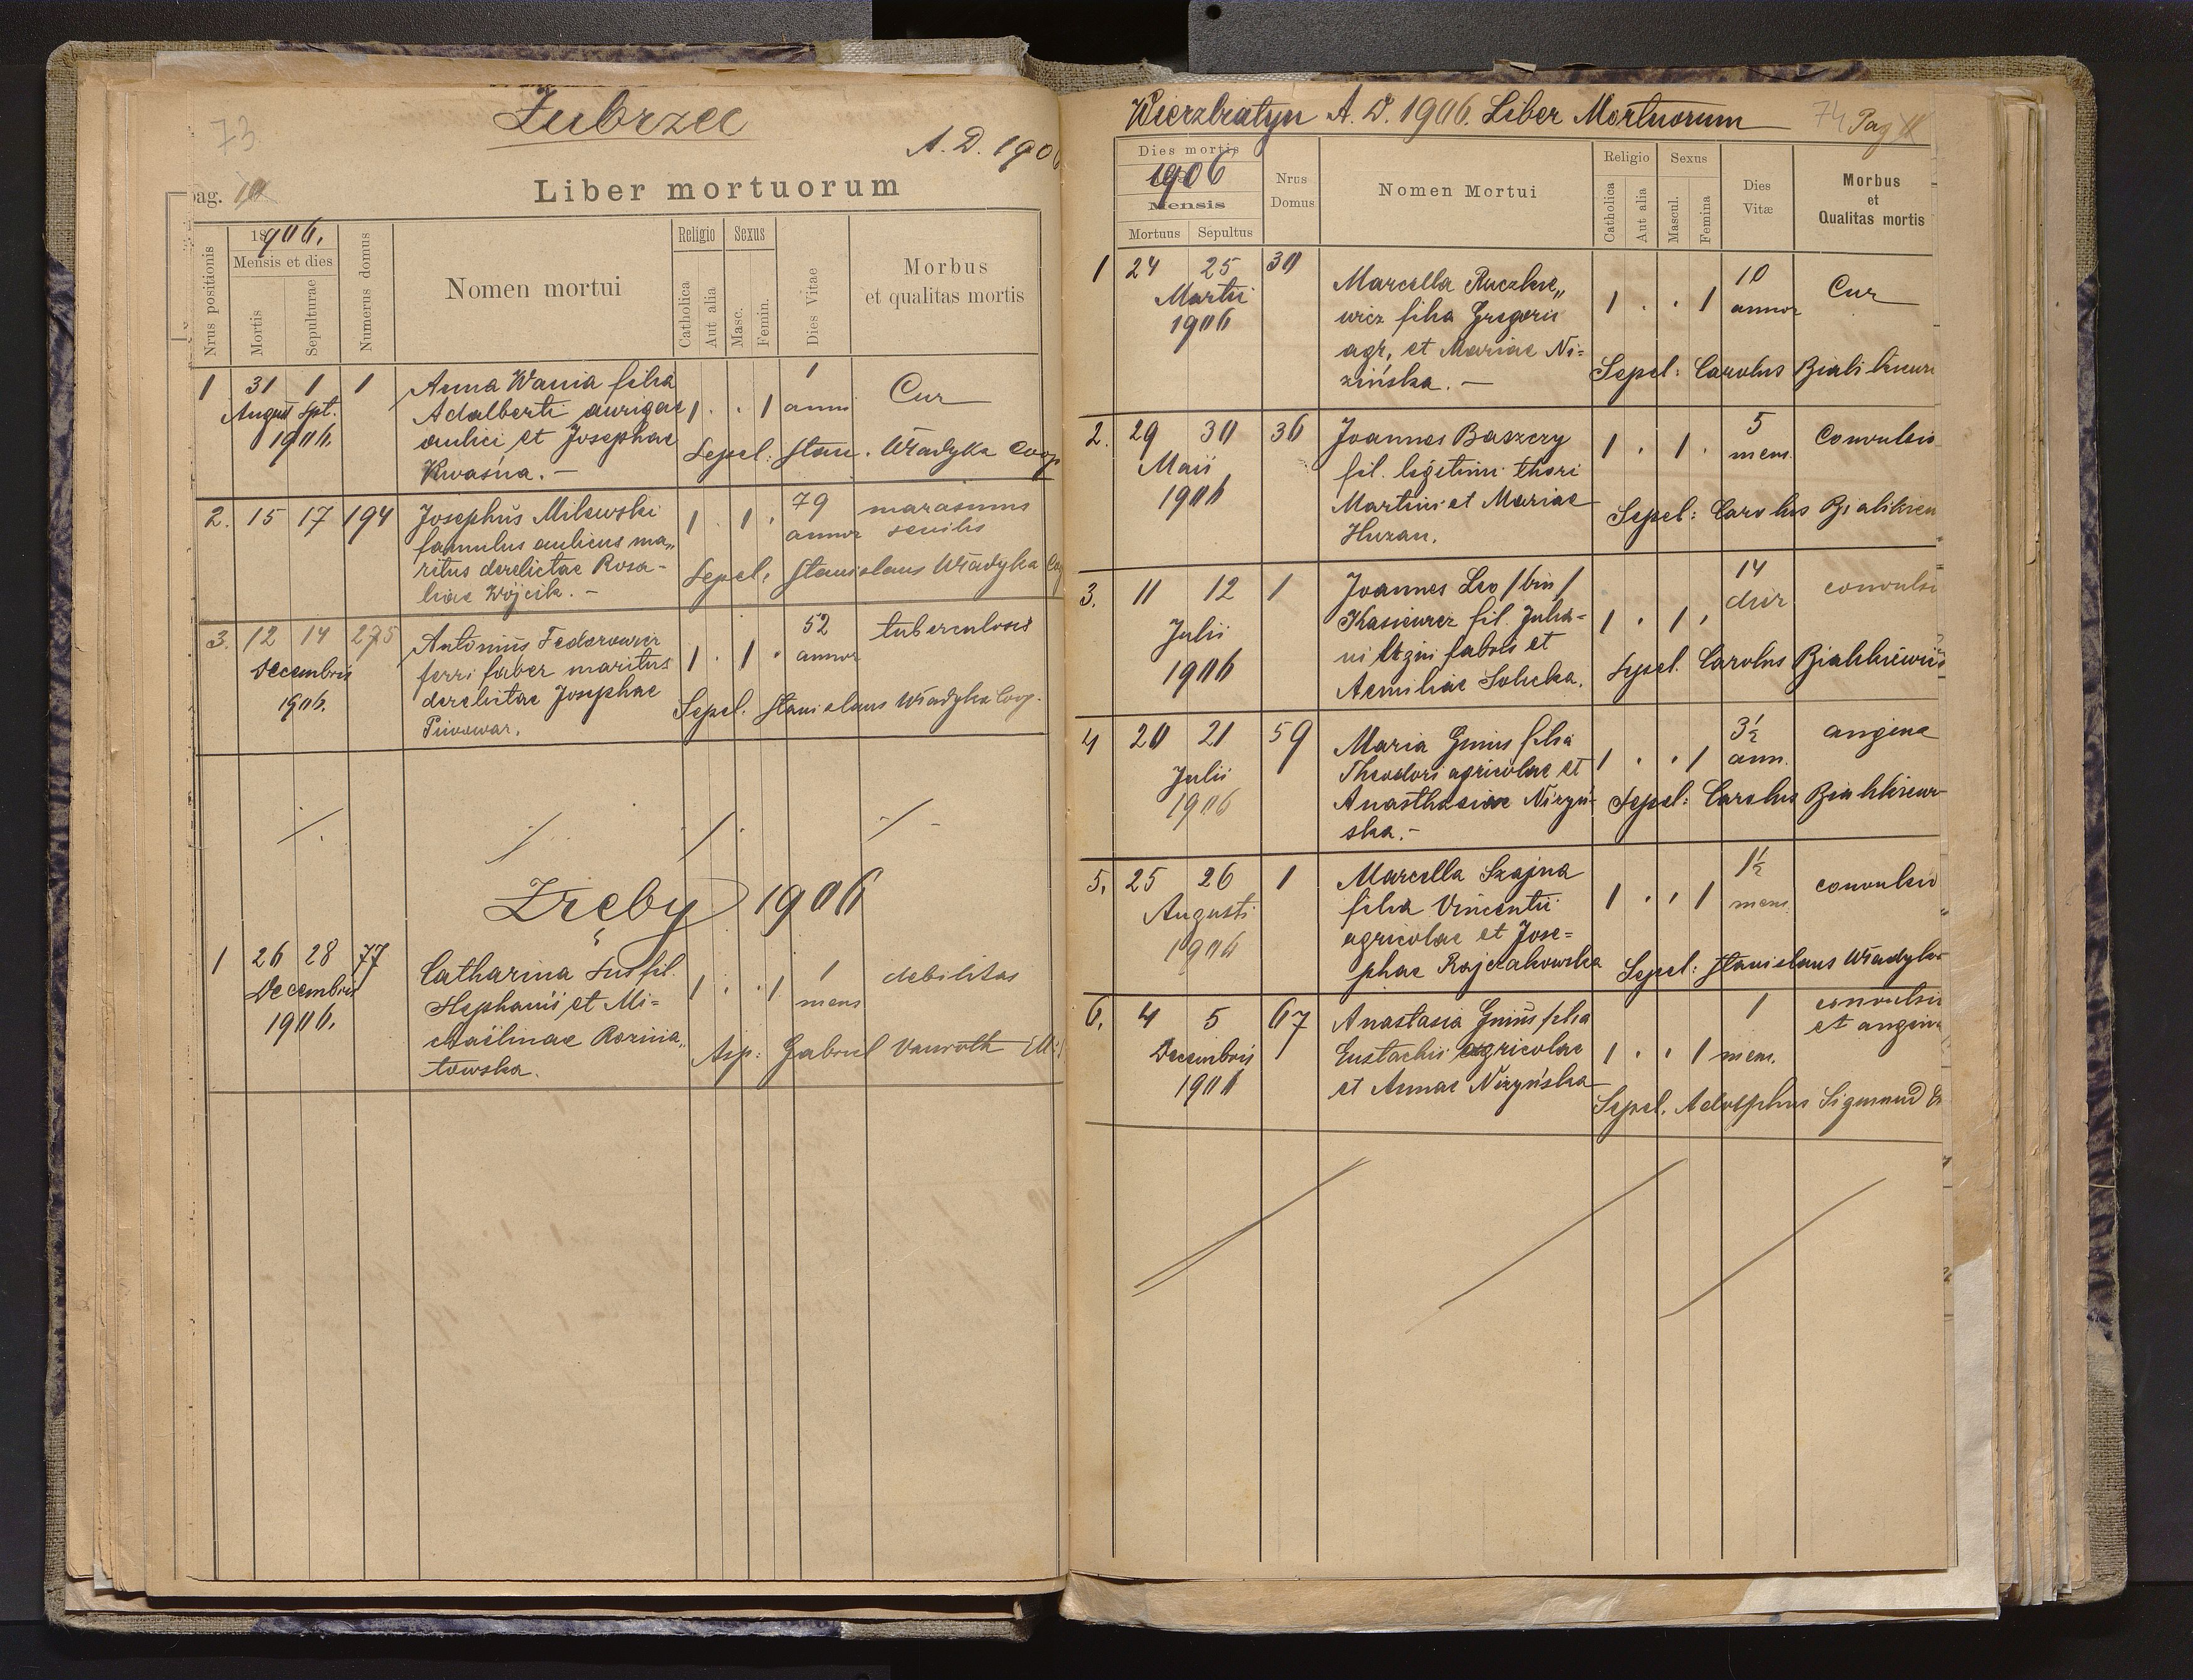 73
Zubrzec
A. D. 1906
pag.
Liber mortuorum
Nrus positionis
18906.
Mensis et dies
Mortis
Sepulturae
Numerus domus
Nomen mortui
Religio
Catholica
Aut alia
Sexus
Masc.
Femin.
Dies Vitae
Morbus
et qualitas mortis
1 31 1 1 Anna Wania filia 1 Cur
August Spt. Adalberti aurigae 1 . . 1 anni
1906. aulici et Josephae
Kwaśna. – Sepel: Stan. Władyka Coop
2. 15 17 194 Josephus Milewski 1 . 1 . 79 marasmus
famulus aulicus ma„ annor senilis
ritus derelictae Rosa-
liae Wójcik. – Sepel: Stanislaus Władyka
3. 12 14 275 Antonius Fedorowicz 52 tuberculosis
Decembris ferri faber maritus 1 . 1 . annor
1906. derelictae Josephae
Piwowar. Sepel. Stanislaus Władyka Coop.
Źręby 1906
1 26 28 77 Catharina fil. 1 . . 1 1 debilitas
Decembris Stephani et Mi= mens
1906. chaëlinae
towska. Asp: Gabriel
Wierzbiatyn A. D. 1906. Liber Mortuorum
74 Pag 11
Dies mortis
1906
Mensis
Mortuus
Sepultus
Nrus
Domus
Nomen Mortui
Religio
Catholica
Aut alia
Sexus
Mascul.
Femina
Dies
Vitæ
Morbus
et
Qualitas mortis
1 24 25 30 Marcella Ruczkie„ 10 Cur
Martii wicz filia Gregorii 1 . . 1 annor
1906 agr. et Mariae Ni=
zińska. – Sepel: Carolus
2. 29 30 36 Joannes Baszczy 5 Convulsio
Maii fil. legitimi thori 1 . 1 . mens.
1906 Martini et Mariae
Huzan. Sepel: Carolus
3. 11 12 1 Joannes Leo /bin/ 14
Julii Kasiewicz fil. Julia= 1 . 1 . dier.
1906 ni et
Aemiliae Solicka. Sepel. Carolus
4 20 21 59 Maria Gnius filia 3½ angina
Julii Theodori agricolae et 1 . . 1 ann.
1906 Anasthasiae Nizyń-
ska. – Sepel: Carolus
5. 25 26 1 Marcella Szajna 1½ convulsio
Augusti filia Vincentii 1 . . 1 mens.
1906 agricolae et Jose=
phae Rajczakowska Sepel: Stanislaus Władyka
6. 4 5 67 Anastasia Gnius filia 1
Decembris Eustachii agricolae 1 . . 1 mens. et angina
1906 et Annae Nizyńska
Sepel. Adolphus Sigmund